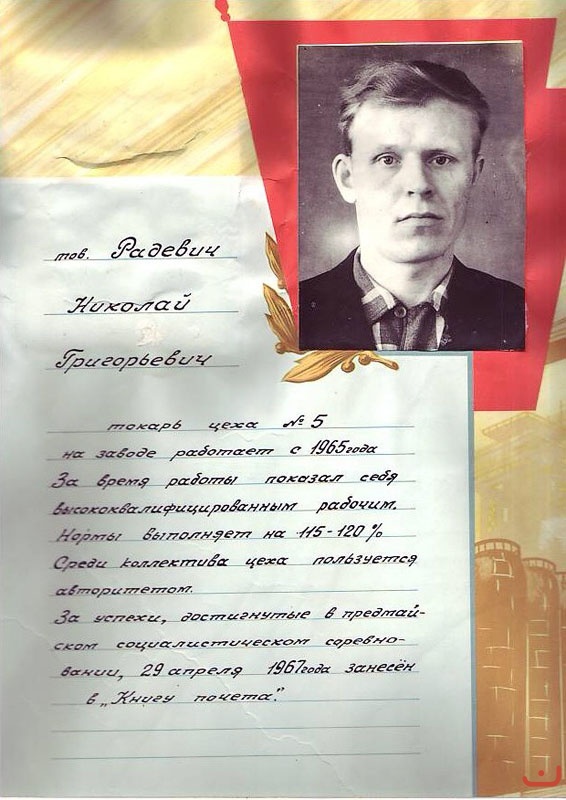 тов. Радевич
Николай
Григорьевич
токарь цеха № 5
на заводе работает с 1965 года
За время работы показал себя
высококвалифицированным рабочим.
Нормы выполняет на 115-120 %
Среди коллектива цеха пользуется
авторитетом.
За успехи, достигнутые в предмай-
ском социалистическом соревно-
вании, 29 апреля 1967 года занесён
в „Книгу почета".